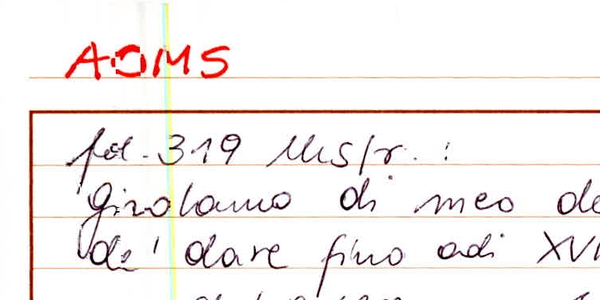 AOMS
fol. 319 MS/r. :
girolamo di meo de
de' dare fino adi XVI